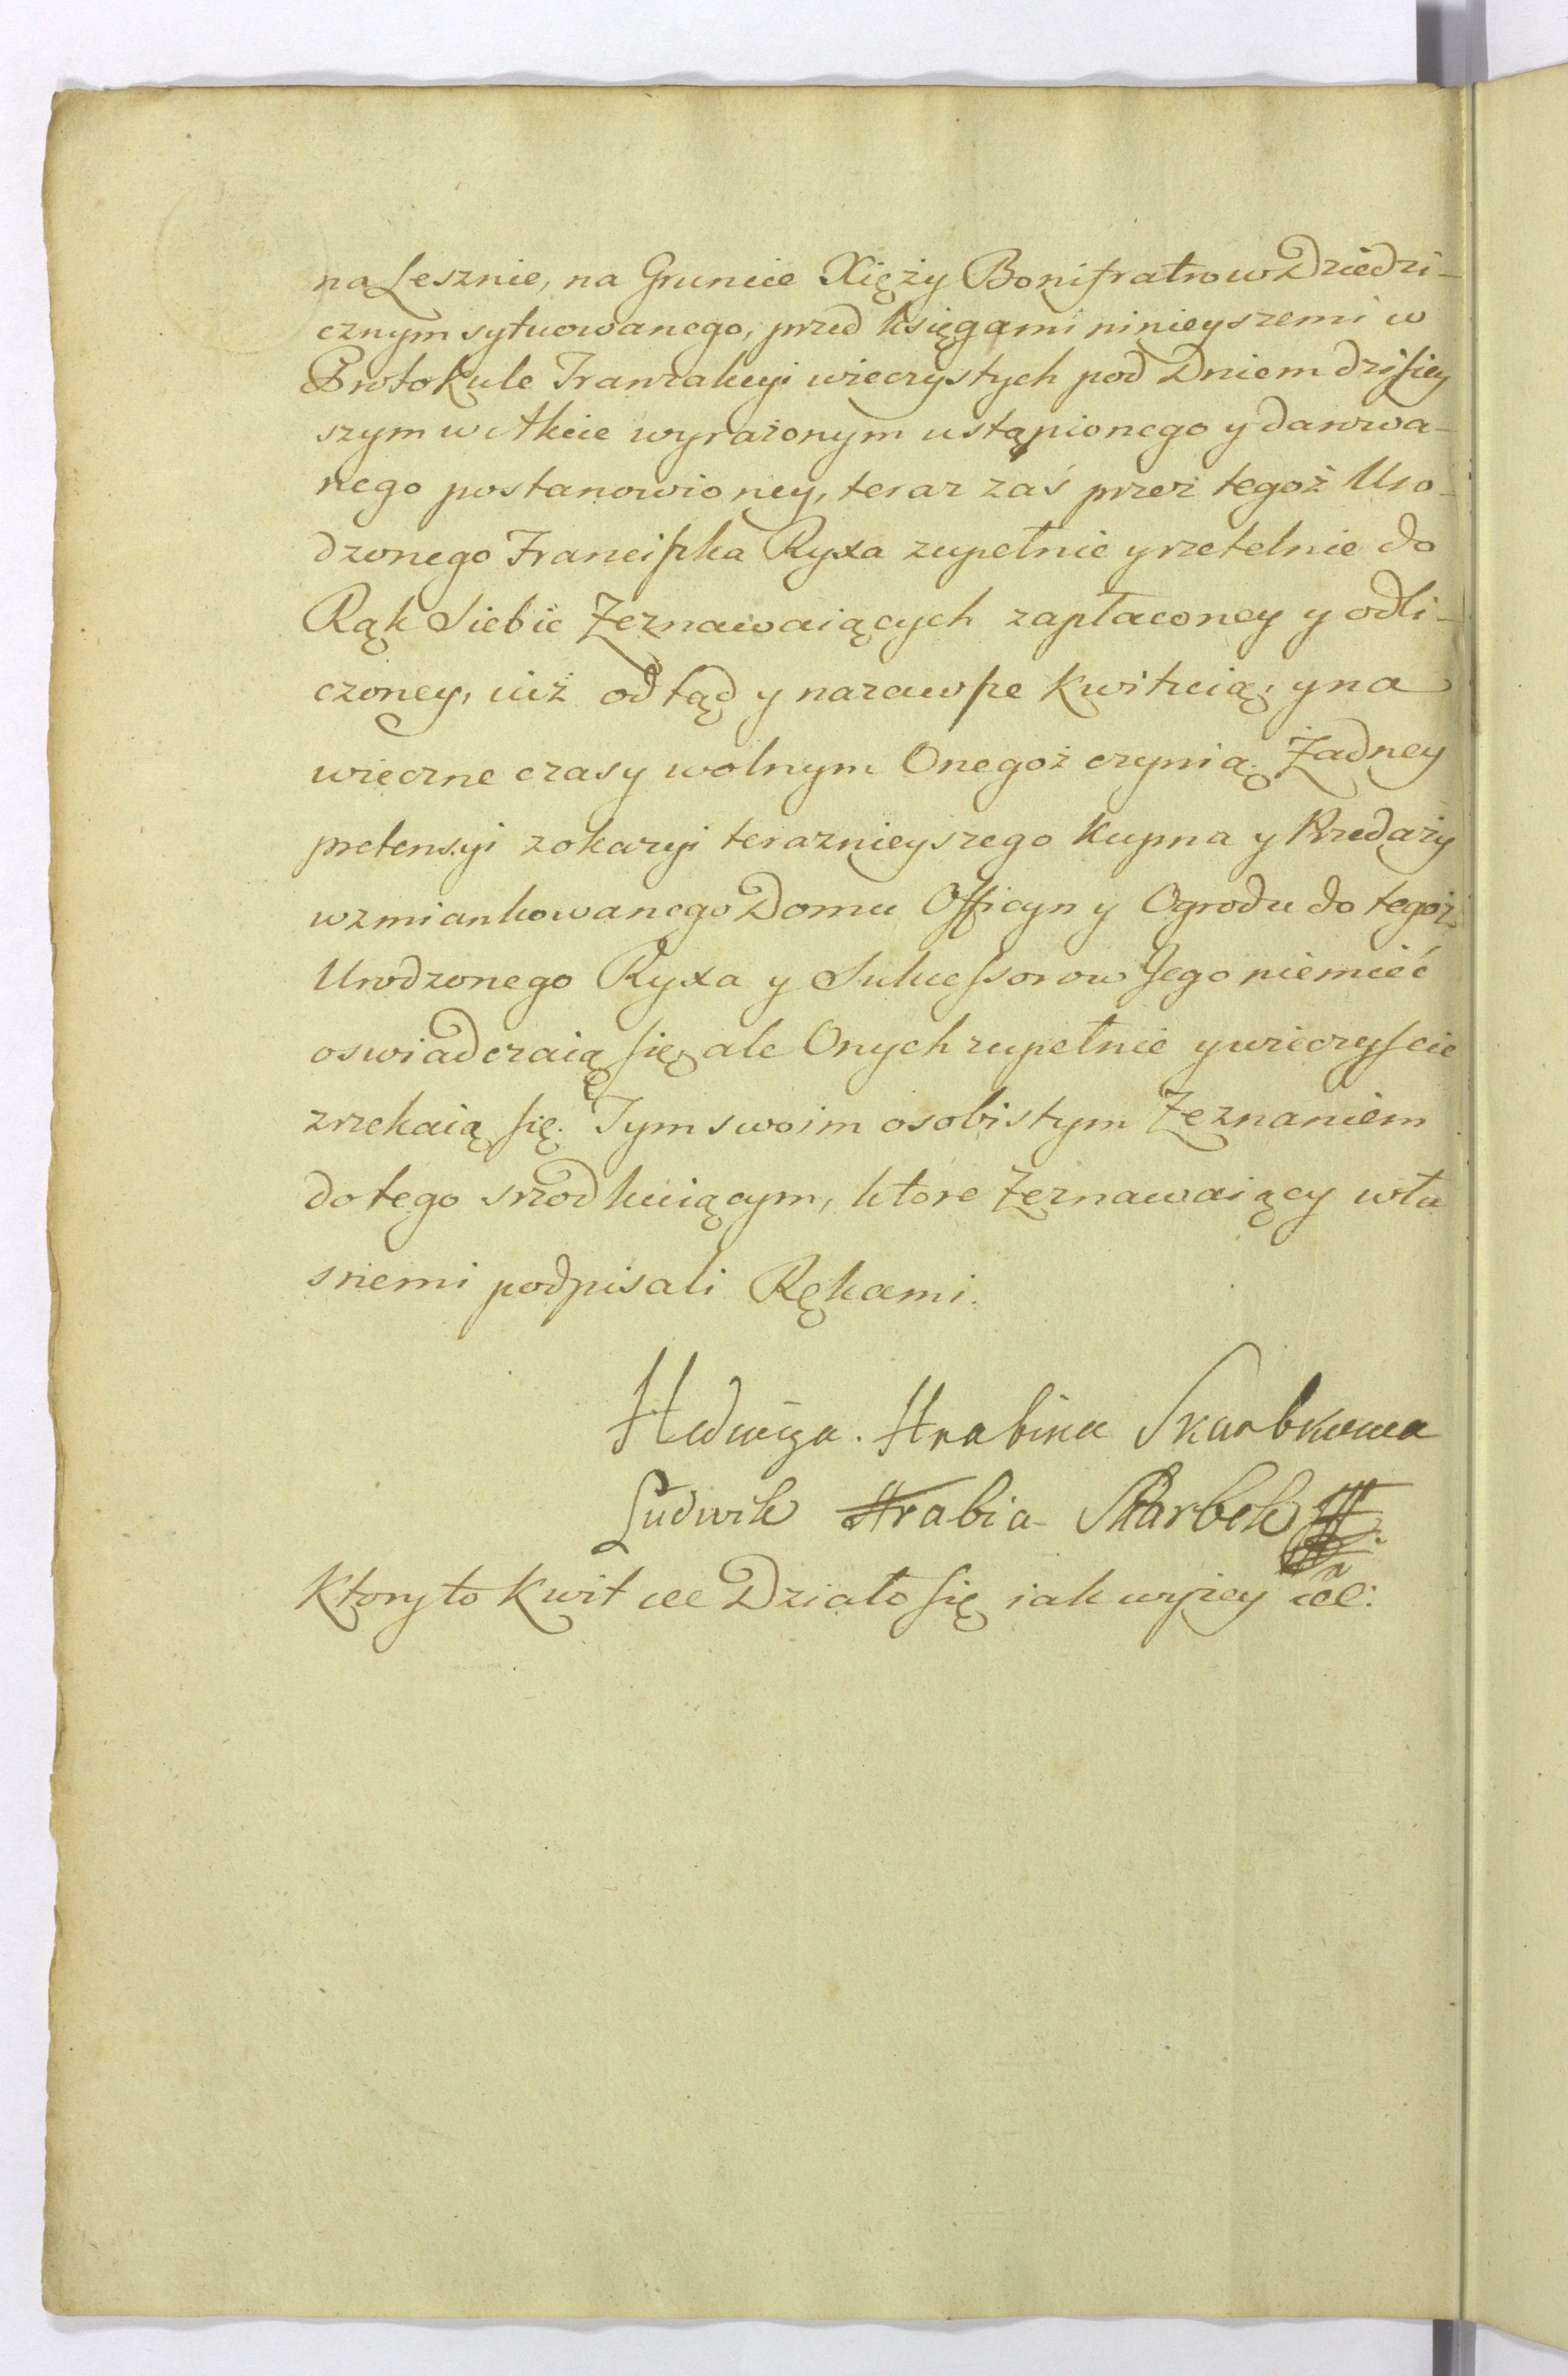 na Lesznie, na Gruncie Xięży Bonifratrow Dziedzi-
cznym sytuowanego, przed księgami ninieyszemi w
Protokule Tranzakcyi wieczystych pod Dniem dzisiey
szym w Akcie wyrażonym ustąpionego y darowa-
nego postanowioney, teraz zaś przez tegoż Uro-
dzonego Franciszka Ryxa zupełnie y rzetelnie do
Rąk Siebie Zeznawaiących zapłaconey y odli-
czoney, iuż odtąd y nazawsze kwituią, y na
wieczne czasy wolnym Onegoż czynią. Żadney
pretensyi z okazyi teraznieyszego kupna y Przedaży
wzmiankowanego Domu Officyn y Ogrodu do tegoż
Urodzonego Ryxa y Sukcessorow Jego niemieć
oswiadczaią się, ale Onych zupełnie y wieczyscie
zrzekaią się. Tym swoim osobistym Zeznaniem
do tego srzodkuiącym, ktore Zeznawaiący wła
sniemi podpisali Rękami.
Hedwiga. Hrabina Skarbkowa
Ludwik Hrabia Skarbek
Ktory to Kwit etc Działo się iak wyżey etc: